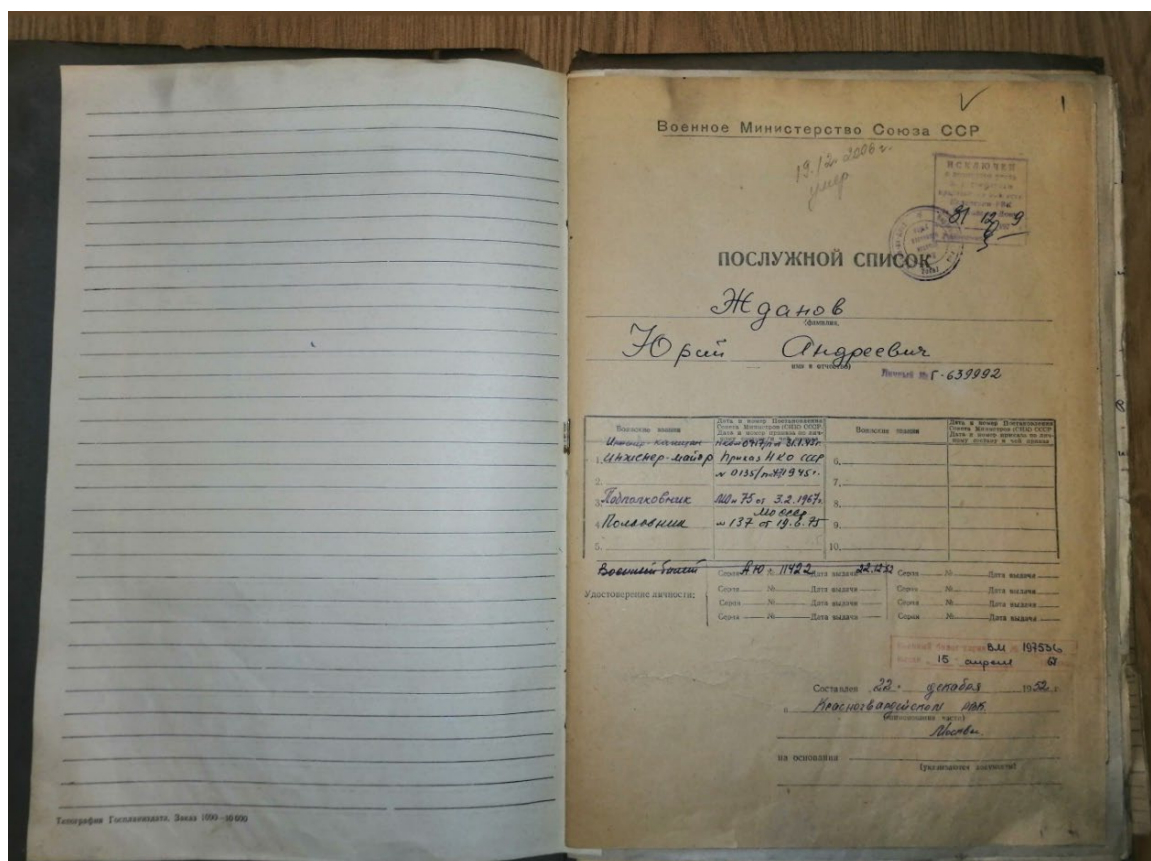 Типография Госпланиздата. Заказ 1990—10 000
1
Военное Министерство Союза ССР
19.12.2006 г.
умер
ИСКЛЮЧЕН
31 12 9
ПОСЛУЖНОЙ СПИСОК
Жданов
(фамилия,
Юрий Андреевич
имя и отчество)
Личный № Г-639992
Воинские звания
Дата и номер Постановления
Совета Министров (СНК) СССР.
Дата и номер приказа по лич-
ному составу и чей приказ
Воинские звания
Дата и номер Постановления
Совета Министров (СНК) СССР.
Дата и номер приказа по лич-
ному составу и чей приказ
Инженер-капитан
1. Инженер-майор Приказ НКО СССР 6.
2. № 0135/ 1945 г. 7.
3. Подполковник МО № 75 от 3.2.1967 г. 8.
МО СССР
4. Полковник № 137 от 19.6.75 9.
5. 10.
Военный билет Серия АЮ № 11422 Дата выдачи 22.12.52 Серия № Дата выдачи
Удостоверение личности:
Серия № Дата выдачи Серия № Дата выдачи
Серия № Дата выдачи Серия № Дата выдачи
Серия № Дата выдачи Серия № Дата выдачи
Военный билет серия ВМ № 197536
15 апреля
Составлен 22 декабря 1952 г.
в Красногвардейском РВК
(наименование части)
Москвы
на основании
(указывания документы)